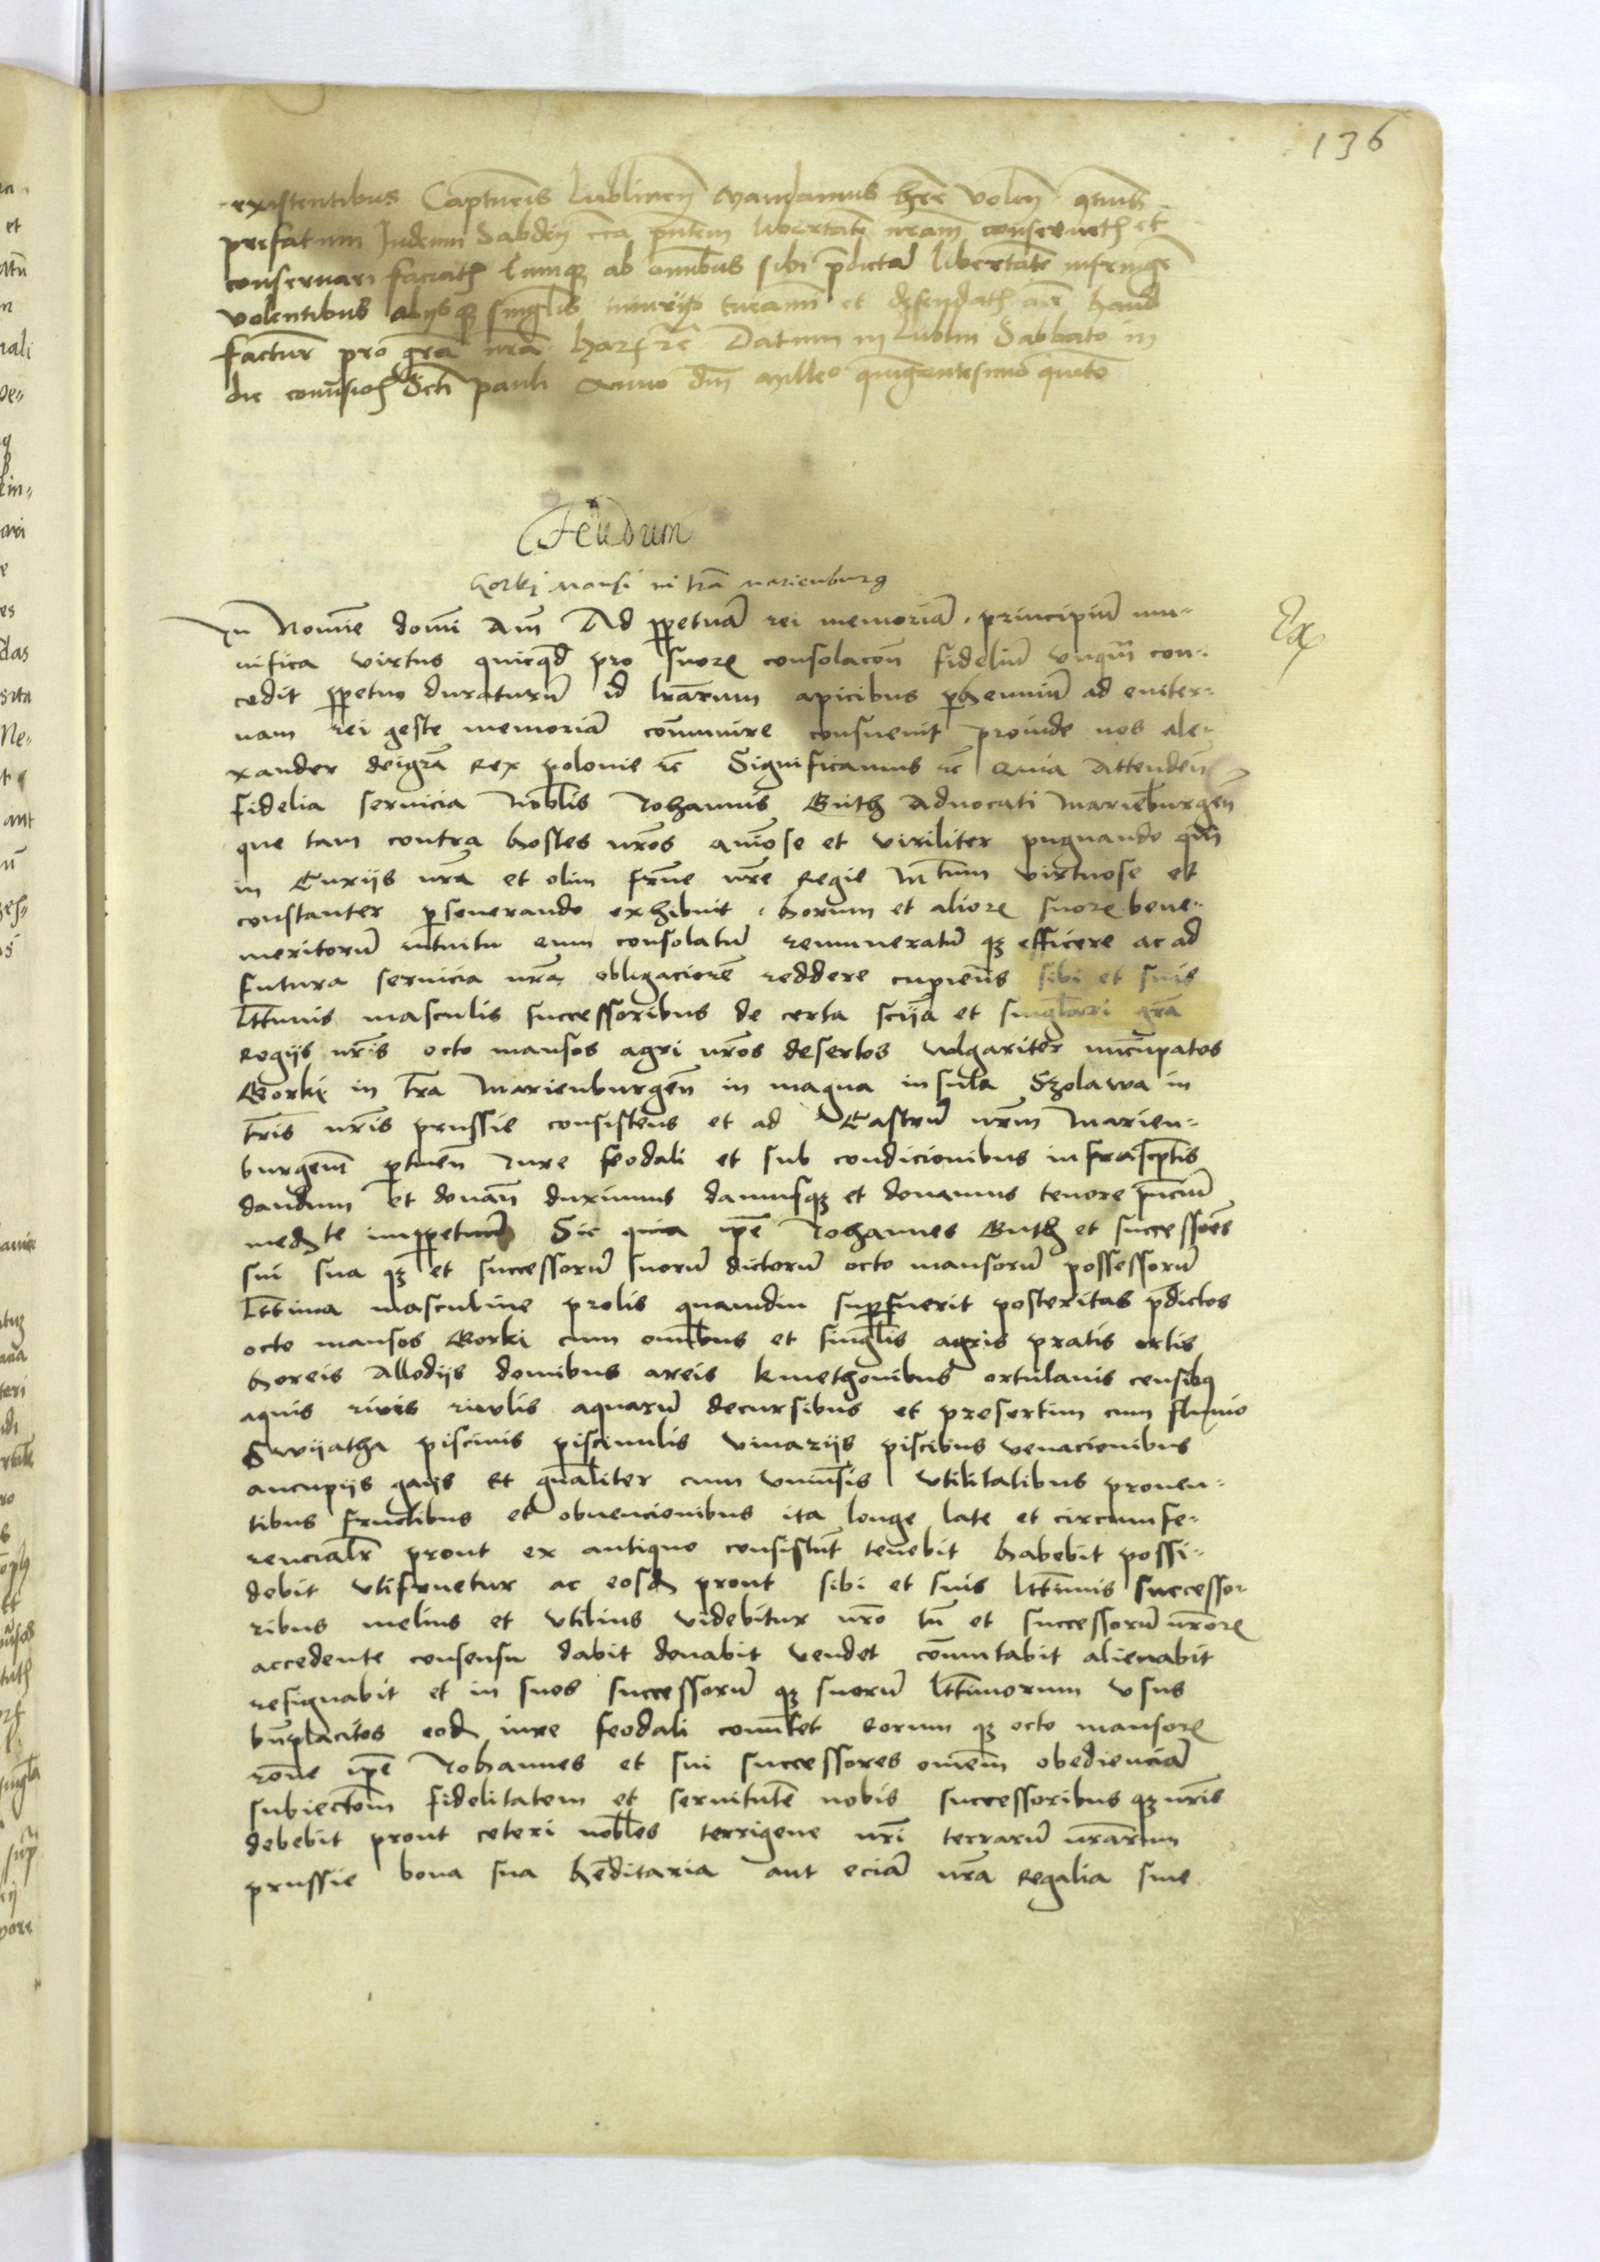 136
existentibus Captureis Lublinen Mandamus hre volen qtinus
prefatum Judeum Sabdey cca pntem libertate nram conserueth et
conseruari faciath Eumqz ab omibus sibi pdictā libertatē infringe
volentibus alijsqz singlis iniurijs tueami et defendath nec haud
factur pro gra nra harzre Datum in Lublin Sabbato in
die conusiois Scti pauli Anno dni Milleo quigentesimo quito
Feudum
Gorki mansi in tra marienburg
In Nomine domi Am Ad ppetuā rei memoriā . principiū mu-
nifica virtus quicqd pro suorz consolacon fideliū vnqm con-
cedit ppetuo duraturū id lrarum apicibus phenniū ad euiter-
nam rei geste memoriā comunire consueuit proinde nos Ale-
xander deigra Rex polonie rc Significamus rc Quia Attenden
fidelia seruicia Noblis Johannis Guth Aduocati Marieburgen
que tam contra hostes nros aiose et viriliter pugnando qm
in Curijs nra et olim frme nre Regie Mtum virtuose et
constanter pseuerando exhibuit . horum et aliorz suorz bene-
meritorū intuitu eum consolatū remuneratū qz efficere ac ad
futura seruicia nra obligaciorē reddere cupiens sibi et suis
lttimis masculis successoribus de certa sciia et singlari gra
Regijs nris octo mansos agri nros desertos vulgariter nucupatos
Gorki in tra Marienburgen in magna insula Szolawa in
tris nris prussie consistens et ad Castrū nrm Marien-
burgenm ptinen Jure feodali et sub condicionibus infrascptis
dandum et donan duximus damusqz et donamus tenore pnciū
medte imppetuū Sic quia ipe Johannes Guth et successoēs
sui sua qz et successorū suorū dictorū octo mansorū possessorū
lttima masculine prolis quamdiu supfuerit posteritas pdictos
octo mansos Gorki cum omibus et singlis agris pratis ortis
horeis Allodijs domibus areis kmethonibus ortulanis censibq
aquis riuis riuulis aquarū decursibus et presertim cum fluuio
Swyatha piscinis piscinulis viuarijs piscibus venacionibus
aucupijs gaijs et gnaliter cum vniusis vtilitatibus prouen-
tibus fructibus et obuencionibus ita longe late et circumfe-
rencialr prout ex antiquo consistut tenebit habebit possi-
debit vtifruetur ac eosd prout sibi et suis lttimis successo-
ribus melius et vtilius videbitur nro tn et successorū nrorz
accedente consensu dabit donabit vendet comutabit alienabit
resignabit et in suos successorū qz suorū lttimorum vsus
bnplacitos eod iure feodali conutet Eorum qz octo mansorz
rone ipe Johannes et sui successores omem obedienciā
subiectom fidelitatem et seruitutē nobis successoribus qz nris
debebit prout ceteri nobles terrigene nri terrarū nrarum
prussie bona sua heditaria aut eciā nra Regalia siue
Ex